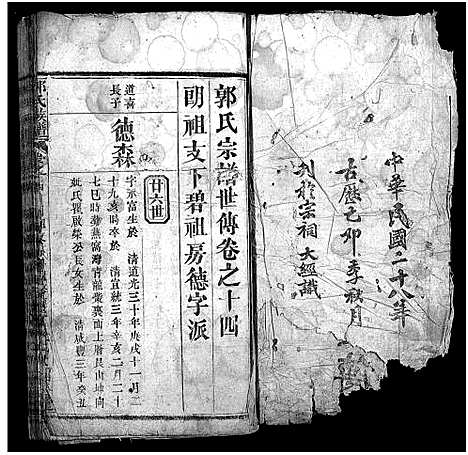 中華民國二十八年
古歷己卯季秋月
刊於宗祠大經識
郭氏宗譜世傳卷之十四
明祖支下碧祖房德字派
廿六世
道喜長子
德森
字承富生於 清道光三十年庚戌十一月二
十九亥時卒於 清宣統三年辛亥二月二十
七巳時葬燕窩海青龍嘴艮山上厝艮山坤向
妣氏瞿啟榮公長女生於 清咸豐三年癸丑